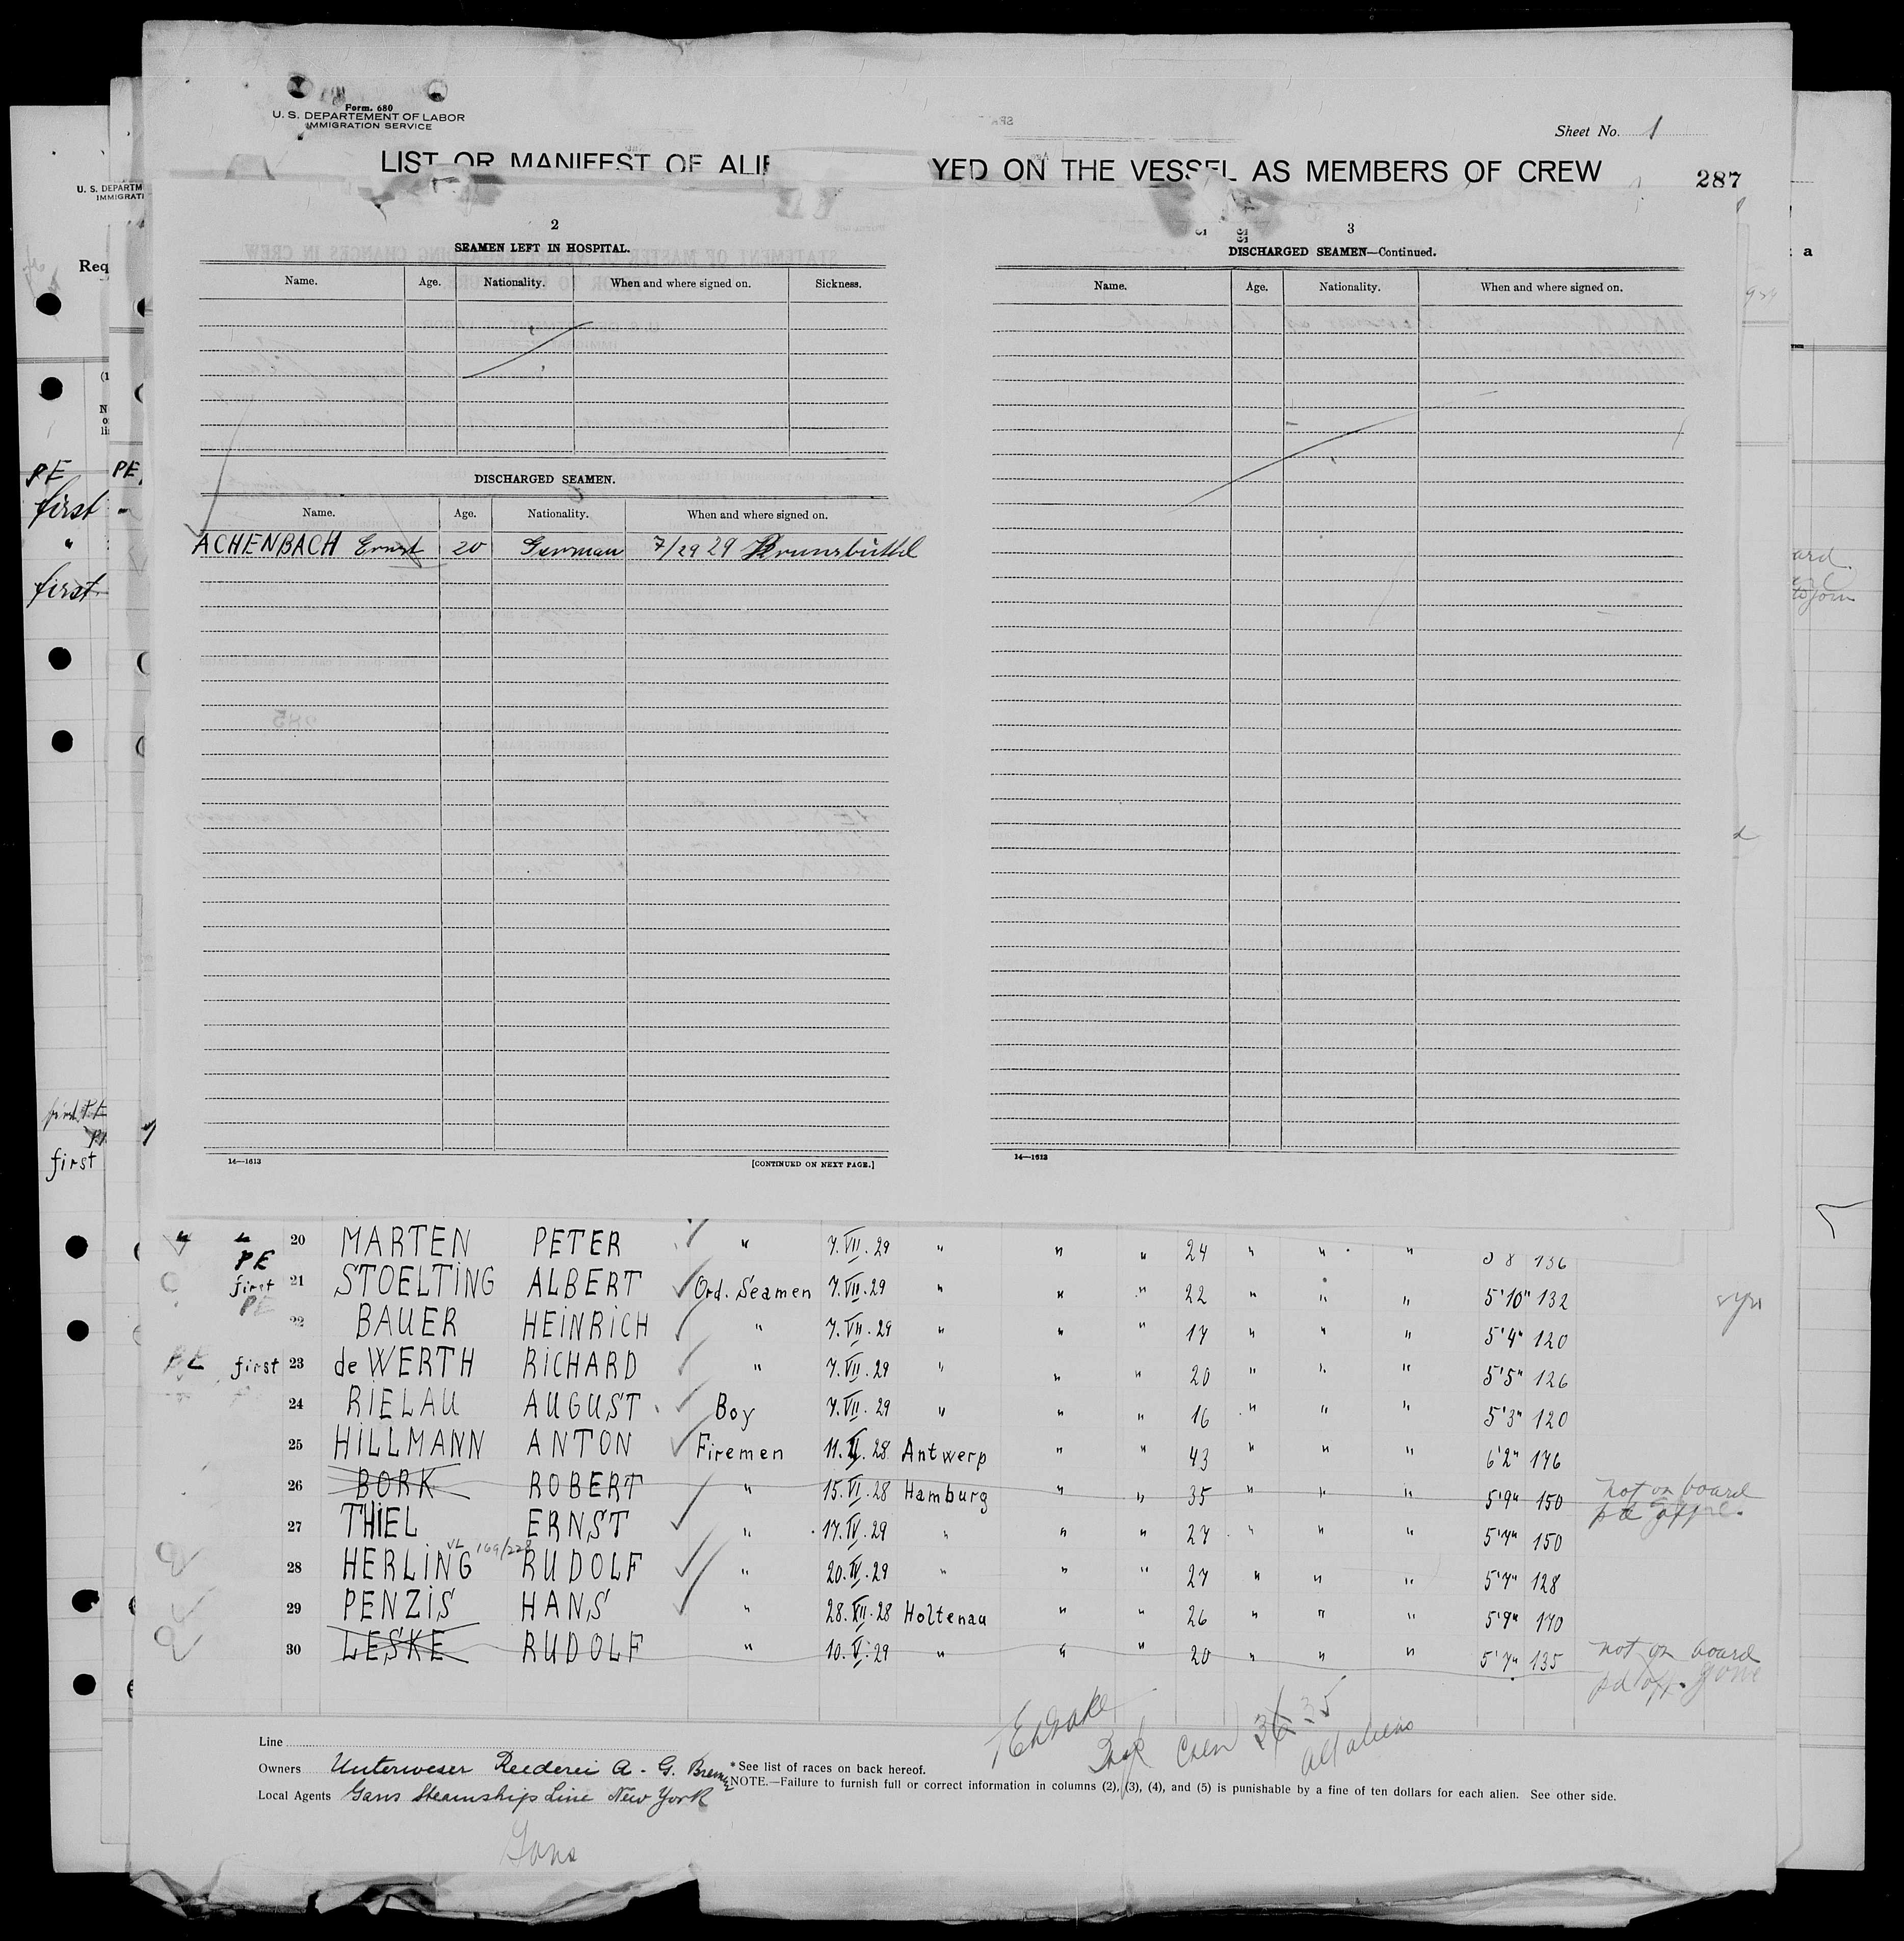 Form. 680
U. S. DEPARTEMENT OF LABOR
IMMIGRATION SERVICE
Sheet No. 1
LIST OR MANIFEST OF ALIE YED ON THE VESSEL AS MEMBERS OF CREW
287
U. S. DEPARTM
IMMIGRATI
Req
PE PE
first
"
first
first
2
SEAMEN LEFT IN HOSPITAL.
Name. Age. Nationality. When and where signed on. Sickness.
DISCHARGED SEAMEN.
Name. Age. Nationality. When and where signed on.
ACHENBACH Ernst 20 German 7/29 29 Brunsbüttel
14—1613 [CONTINUED ON NEXT PAGE.]
3
DISCHARGED SEAMEN—Continued.
Name. Age. Nationality. When and where signed on.
14—1613
" " 20 MARTEN PETER " 7.VII.29 " " " 24 " " " 5 8 136
PE
first 21 STOELTING ALBERT Ord. Seamen 7.VII.29 " " " 22 " " " 5'10" 132
PE
22 BAUER HEINRICH " 7.VII.29 " " " 17 " " " 5'4" 120
PE first 23 de WERTH RICHARD " 7.VII.29 " " " 20 " " " 5'5" 126
24 RIELAU AUGUST Boy 7.VII.29 " " " 16 " " " 5'3" 120
25 HILLMANN ANTON Firemen 11.II.28 Antwerp " " 43 " " " 6'2" 176
26 BORK ROBERT " 15.VI.28 Hamburg " " 35 " " " 5'9" 150 not on board
27 THIEL ERNST " 17.IV.29 " " " 27 " " " 5'7" 150
VL 169/228
28 HERLING RUDOLF " 20.IV.29 " " " 27 " " " 5'7" 128
29 PENZIS HANS " 28.XII.28 Holtenau " " 26 " " " 5'9" 170
30 LESKE RUDOLF " 10.V.29 " " " 20 " " " 5'7" 135 not on board
pd off. gone
Crew 36 35
all aliens
Line
Owners Unterweser Reederei A. G. Bremen
Local Agents Gans Steamship Line New York
*See list of races on back hereof.
NOTE.—Failure to furnish full or correct information in columns (2), (3), (4), and (5) is punishable by a fine of ten dollars for each alien. See other side.
Gans